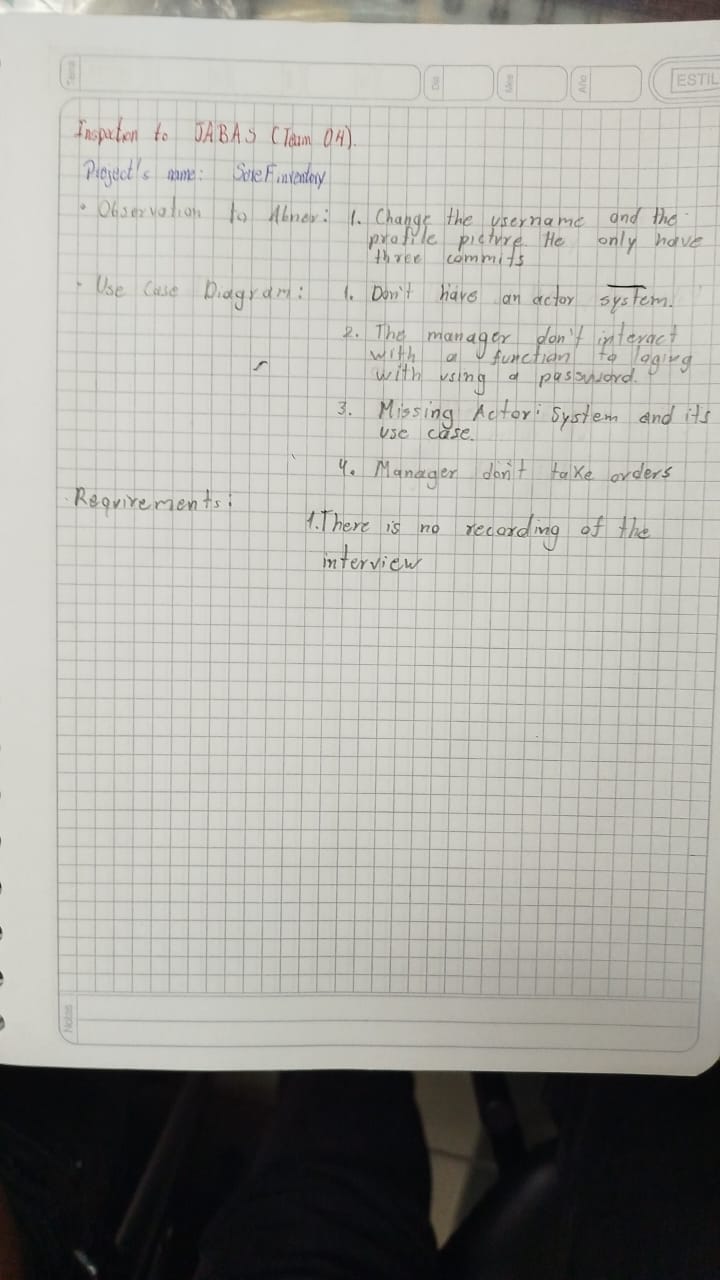 Tema
Día
Mes
Año
ESTIL
Inspection to JABAS (Team 04).
Project's name:
• Observation to Abner: 1. Change the username and the
profile picture. He only have
three commits
• Use Case Diagram: 1. Don't have an actor system.
2. The manager don't interact
with a function to loging
with using a password.
3. Missing Actor: System and its
use case.
4. Manager don't take orders
• Requirements:
1. There is no recording of the
interview
Notas